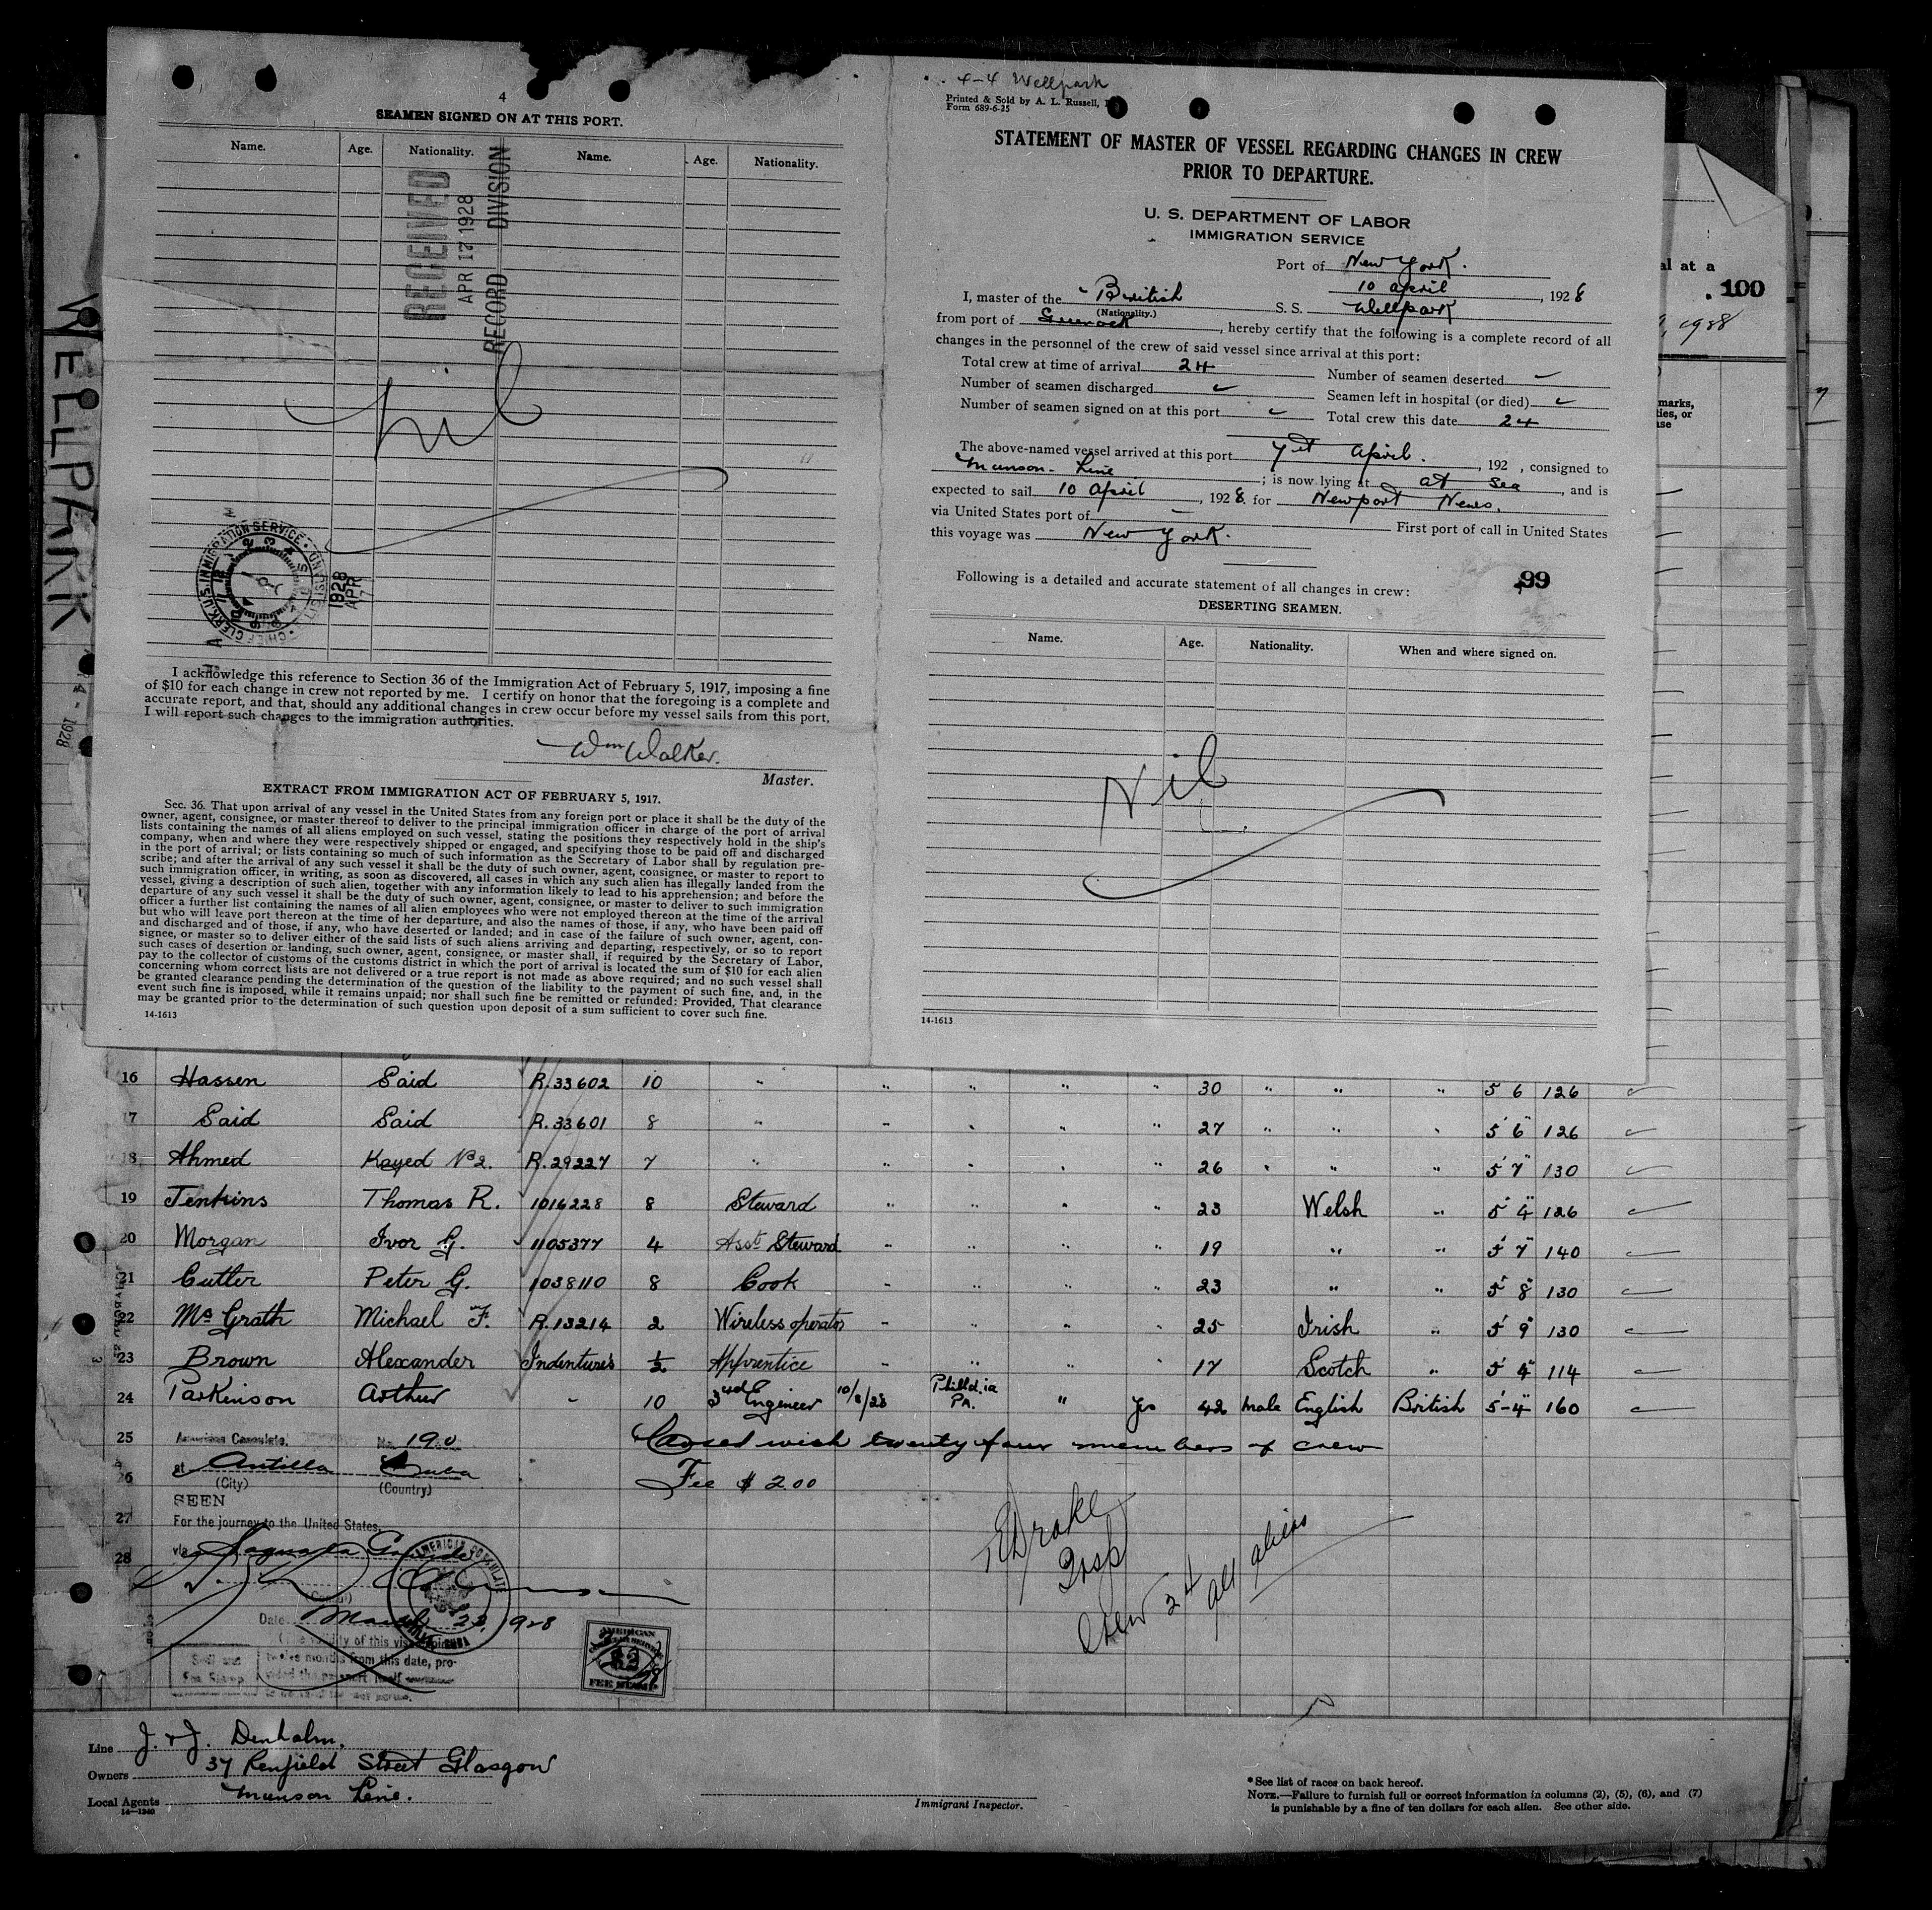 WELLPARK
4 - 1928
4
SEAMEN SIGNED ON AT THIS PORT.
Name. Age. Nationality. Name. Age. Nationality.
RECEIVED
APR 17 1928
RECORD DIVISION
Nil
CHIEF CLERK U.S. IMMIGRATION SERVICE
1928
APR
I acknowledge this reference to Section 36 of the Immigration Act of February 5, 1917, imposing a fine
of $10 for each change in crew not reported by me. I certify on honor that the foregoing is a complete and
accurate report, and that, should any additional changes in crew occur before my vessel sails from this port,
I will report such changes to the immigration authorities.
Wm Walker.
Master.
EXTRACT FROM IMMIGRATION ACT OF FEBRUARY 5, 1917.
Sec. 36. That upon arrival of any vessel in the United States from any foreign port or place it shall be the duty of the
owner, agent, consignee, or master thereof to deliver to the principal immigration officer in charge of the port of arrival
lists containing the names of all aliens employed on such vessel, stating the positions they respectively hold in the ship's
company, when and where they were respectively shipped or engaged, and specifying those to be paid off and discharged
in the port of arrival; or lists containing so much of such information as the Secretary of Labor shall by regulation pre-
scribe; and after the arrival of any such vessel it shall be the duty of such owner, agent, consignee, or master to report to
such immigration officer, in writing, as soon as discovered, all cases in which any such alien has illegally landed from the
vessel, giving a description of such alien, together with any information likely to lead to his apprehension; and before the
departure of any such vessel it shall be the duty of such owner, agent, consignee, or master to deliver to such immigration
officer a further list containing the names of all alien employees who were not employed thereon at the time of the arrival
but who will leave port thereon at the time of her departure, and also the names of those, if any, who have been paid off
and discharged and of those, if any, who have deserted or landed; and in case of the failure of such owner, agent, con-
signee, or master so to deliver either of the said lists of such aliens arriving and departing, respectively, or so to report
such cases of desertion or landing, such owner, agent, consignee, or master shall, if required by the Secretary of Labor,
pay to the collector of customs of the customs district in which the port of arrival is located the sum of $10 for each alien
concerning whom correct lists are not delivered or a true report is not made as above required; and no such vessel shall
be granted clearance pending the determination of the question of the liability to the payment of such fine, and, in the
event such fine is imposed, while it remains unpaid; nor shall such fine be remitted or refunded: Provided, That clearance
may be granted prior to the determination of such question upon deposit of a sum sufficient to cover such fine.
14-1613
4-4 Wellpark
Printed & Sold by A. L. Russell,
Form 689-6-25
STATEMENT OF MASTER OF VESSEL REGARDING CHANGES IN CREW
PRIOR TO DEPARTURE.
U. S. DEPARTMENT OF LABOR
IMMIGRATION SERVICE
Port of New York.
10 April, 1928
I, master of the British S. S. Wellpark
(Nationality.)
from port of Greenock, hereby certify that the following is a complete record of all
changes in the personnel of the crew of said vessel since arrival at this port:
Total crew at time of arrival 24 Number of seamen deserted
Number of seamen discharged Seamen left in hospital (or died)
Number of seamen signed on at this port Total crew this date 24
The above-named vessel arrived at this port 7th April., 192 , consigned to
Munson Line; is now lying at at sea, and is
expected to sail 10 April, 1928 for Newport News.
via United States port of - First port of call in United States
this voyage was New York.
Following is a detailed and accurate statement of all changes in crew:
99
DESERTING SEAMEN.
Name. Age. Nationality. When and where signed on.
Nil
14-1613
al at a
100
, 1928
marks,
ties, or
ase
16 Hassen Said R.33602 10 " " " " " 30 " " " 5 6 126
17 Said Said R.33601 8 " " " " " 27 " " " 5 6 126
18 Ahmed Kayed No 2. R.29227 7 " " " " " 26 " " " 5 7 130
19 Jenkins Thomas R. 1016228 8 Steward " " " " 23 Welsh " 5 4 126
20 Morgan Ivor G. 1105377 4 Asst Steward " " " " 19 " " 5 7 140
21 Cutler Peter G. 1038110 8 Cook " " " " 23 " " 5 8 130
22 McGrath Michael F. R.13214 2 Wireless operator " " " " 25 Irish " 5 9 130
23 Brown Alexander Indentures ½ Apprentice " " " " 17 Scotch " 5 4 114
24 Parkinson Arthur - 10 3rd Engineer 10/2/28 Philld.ia PA. " Yes 42 Male English British 5-4 160
25 American Consulate. No. 190 Closed with twenty four members of crew
26 at Antilla Cuba Fee $ 2.00
(City) (Country)
SEEN
27 For the journey to the United States.
28 via Sagua la Grande
AMERICAN CONSULATE
(Consul)
Date March 23, 1928
(The validity of this visa expires
twelve months from this date, pro-
vided the passport itself
Seal and
Fee Stamp
AMERICAN
$2
FEE STAMP
Drake
Insp
Crew 24
all aliens
Line J. & J. Denholm.
Owners 37 Renfield Street Glasgow
Local Agents Munson Line.
14-1240
Immigrant Inspector.
*See list of races on back hereof.
NOTE.—Failure to furnish full or correct information in columns (2), (5), (6), and (7)
is punishable by a fine of ten dollars for each alien. See other side.